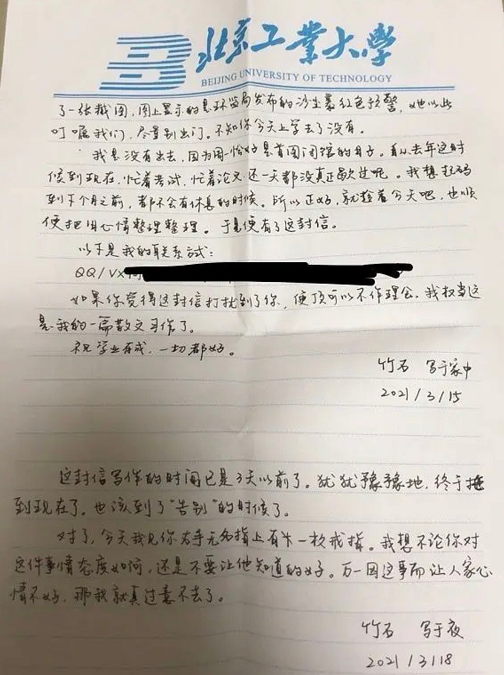 北京工业大学
BEIJING UNIVERSITY OF TECHNOLOGY
了一张截图,图上显示的是环监局发布的沙尘暴红色预警,她以此
叮嘱我们,尽量别出门。不知你今天上学去了没有。
我是没有出去,因为周一恰好是首图闭馆的日子。算从去年这时
候到现在,忙着考试,忙着论文还一天都没真正歇过呢。我想起码
到下个月之前,都不会有休息的时候。所以正好,就趁着今天吧,也顺
便把旧心情整理整理。于是便有了这封信。
以下是我的联系方式:
QQ/VX
如果你觉得这封信打扰到了你,便顶可以不作理会。我权当这
是我的一篇散文习作了。
祝学业有成,一切都好。
竹石 写于家中
2021/3/15
这封信写作的时间已是3天以前了。犹犹豫豫地,终于拖
到现在了。也该到了“告别”的时候了。
对了,今天我见你右手无名指上有卡一枚戒指。我想不论你对
这件事情态度如何,还是不要让他知道的好。万一因这事而让人家心
情不好,那我就真过意不去了。
竹石 写于夜
2021/3/18